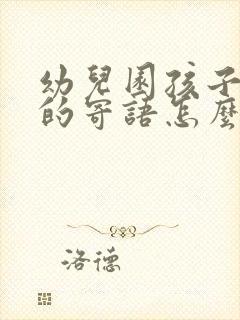 幼兒園孩子
的寄語怎麼
洛德